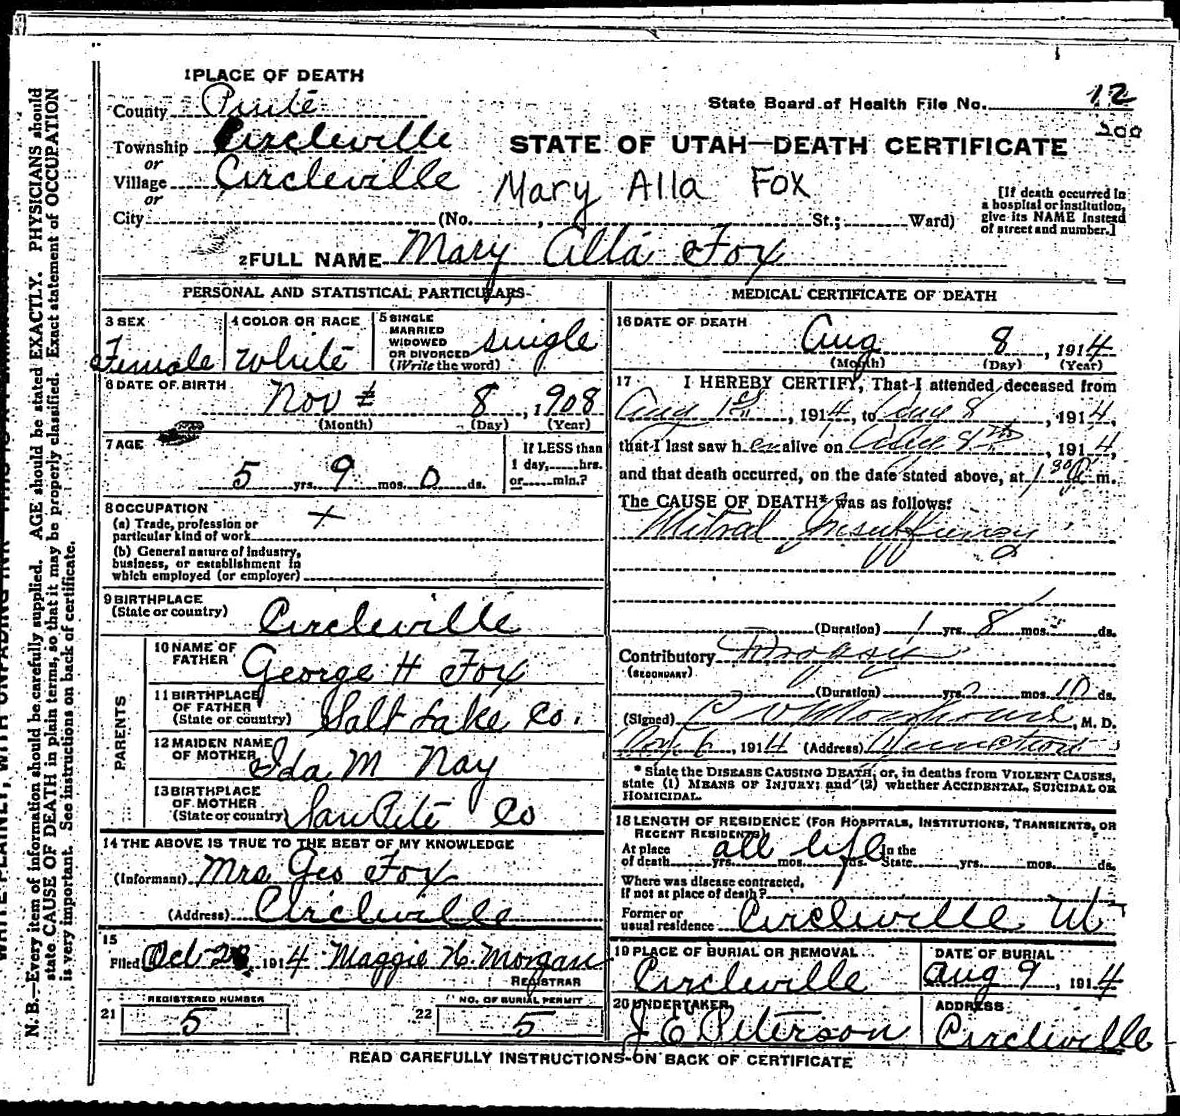 1 PLACE OF DEATH
County Piute
State Board of Health File No. 12
200
Township Circleville
STATE OF UTAH—DEATH CERTIFICATE
or
Village Circleville
Mary Alla Fox
or
City (No. , St.; Ward)
[If death occurred in
a hospital or institution,
give its NAME instead
of street and number.]
2 FULL NAME Mary Alla Fox
PERSONAL AND STATISTICAL PARTICULARS
3 SEX
Female
4 COLOR OR RACE
White
5 SINGLE
MARRIED
WIDOWED
OR DIVORCED
(Write the word)
single
6 DATE OF BIRTH
Nov 8, 1908
(Month) (Day) (Year)
7 AGE
5 yrs. 9 mos. 0 ds.
If LESS than
1 day, hrs.
or min.?
8 OCCUPATION
(a) Trade, profession or
particular kind of work
(b) General nature of industry,
business, or establishment in
which employed (or employer)
9 BIRTHPLACE
(State or country)
Circleville
PARENTS
10 NAME OF
FATHER
George H Fox
11 BIRTHPLACE
OF FATHER
(State or country)
Salt Lake Co.
12 MAIDEN NAME
OF MOTHER
Ida M Nay
13 BIRTHPLACE
OF MOTHER
(State or country)
San Pete Co
14 THE ABOVE IS TRUE TO THE BEST OF MY KNOWLEDGE
(Informant) Mrs Geo Fox
(Address) Circleville
15
Filed Oct 28 1914 Maggie H. Morgan
REGISTRAR
21 REGISTERED NUMBER
5
22 NO. OF BURIAL PERMIT
5
MEDICAL CERTIFICATE OF DEATH
16 DATE OF DEATH
Aug 8, 1914
(Month) (Day) (Year)
17 I HEREBY CERTIFY, That I attended deceased from
Aug 1st, 1914, to Aug 8, 1914,
that I last saw her alive on Aug 8th, 1914,
and that death occurred, on the date stated above, at 1 30 P. m.
The CAUSE OF DEATH* was as follows:
Mitral Insuffiency
(Duration) 1 yrs. 8 mos. ds.
Contributory Dropsy
(SECONDARY)
(Duration) yrs. mos. 10 ds.
(Signed) C V M.D.
Nov. 6, 1914 (Address)
* State the DISEASE CAUSING DEATH, or, in deaths from VIOLENT CAUSES,
state (1) MEANS OF INJURY; and (2) whether ACCIDENTAL, SUICIDAL OR
HOMICIDAL.
18 LENGTH OF RESIDENCE (FOR HOSPITALS, INSTITUTIONS, TRANSIENTS, OR
RECENT RESIDENTS)
At place
of death yrs. mos. ds.
all life
In the
State yrs. mos. ds.
Where was disease contracted,
if not at place of death?
Former or
usual residence Circleville Ut
19 PLACE OF BURIAL OR REMOVAL
Circleville
DATE OF BURIAL
Aug 9, 1914
20 UNDERTAKER
J E Peterson
ADDRESS
Circleville
READ CAREFULLY INSTRUCTIONS ON BACK OF CERTIFICATE
N. B.—Every item of information should be carefully supplied. AGE should be stated EXACTLY. PHYSICIANS should
state CAUSE OF DEATH in plain terms, so that it may be properly classified. Exact statement of OCCUPATION
is very important. See instructions on back of certificate.
WRITE PLAINLY, WITH UNFADING INK